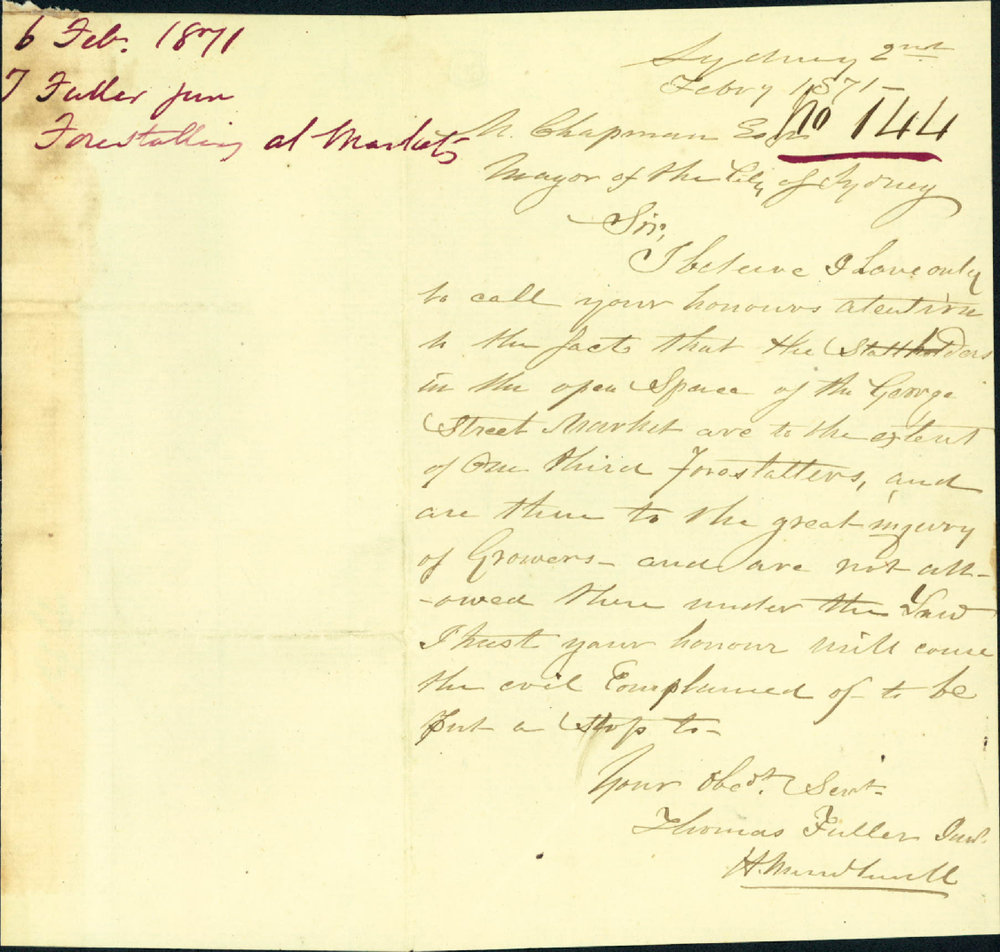 6 Feb. 1871
T Fuller jun
Forestalling at Markets
Sydney 2nd
Febry 1871-
No 144
M. Chapman Esqr
Mayor of the City of Sydney
Sir,
I beleive I have only
to call your honours atention
to the facts that the Stallholders
in the open Space of the George
Street Market are to the extent
of One third Forestallers, and
are there to the great injury
of Growers- and are not all-
-owed there under the Law
I trust your honour will cause
the evil Complained of to be
Put a Stop to-
Your Obedt. Servt-
Thomas Fuller Junr.